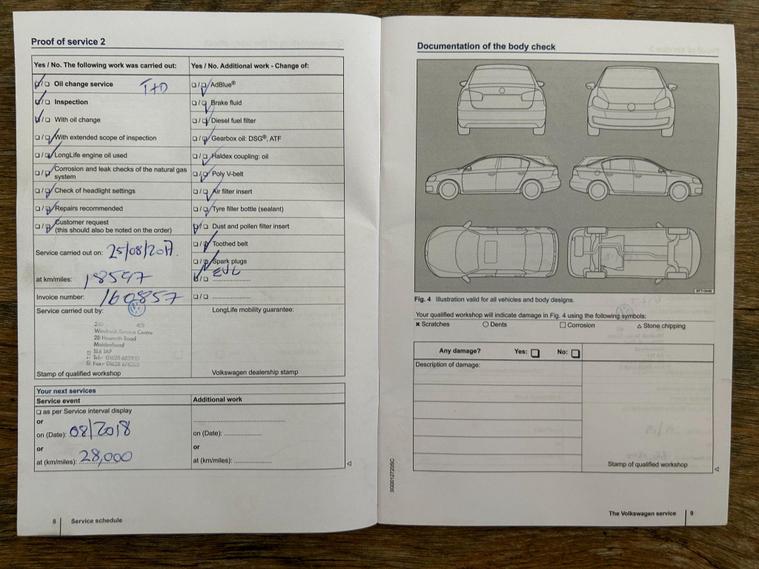 Proof of service 2
Yes / No. The following work was carried out:
Oil change service
Inspection
With oil change
With extended scope of inspection
LongLife engine oil used
Corrosion and leak checks of the natural gas
system
Check of headlight settings
Repairs recommended
Customer request
(this should also be noted on the order)
Service carried out on: 25/08/2017.
at km/miles: 18597
Invoice number: 160857
Service carried out by:
Stamp of qualified workshop
Yes / No. Additional work - Change of:
AdBlue®
Brake fluid
Diesel fuel filter
Gearbox oil: DSG®, ATF
Haldex coupling: oil
Poly V-belt
Air filter insert
Tyre filler bottle (sealant)
Dust and pollen filter insert
Toothed belt
Spark plugs
LongLife mobility guarantee:
Windrush Service Centre
Maidenhead
SL6
Volkswagen dealership stamp
Your next services
Service event
as per Service interval display
or
on (Date): 08/2018
or
at (km/miles): 28,000
Additional work
on (Date):
or
at (km/miles):
8 Service schedule
Documentation of the body check
Fig. 4 Illustration valid for all vehicles and body designs.
Your qualified workshop will indicate damage in Fig. 4 using the following symbols:
Scratches Dents Corrosion Stone chipping
Any damage? Yes: No:
Description of damage:
Stamp of qualified workshop
The Volkswagen service 9